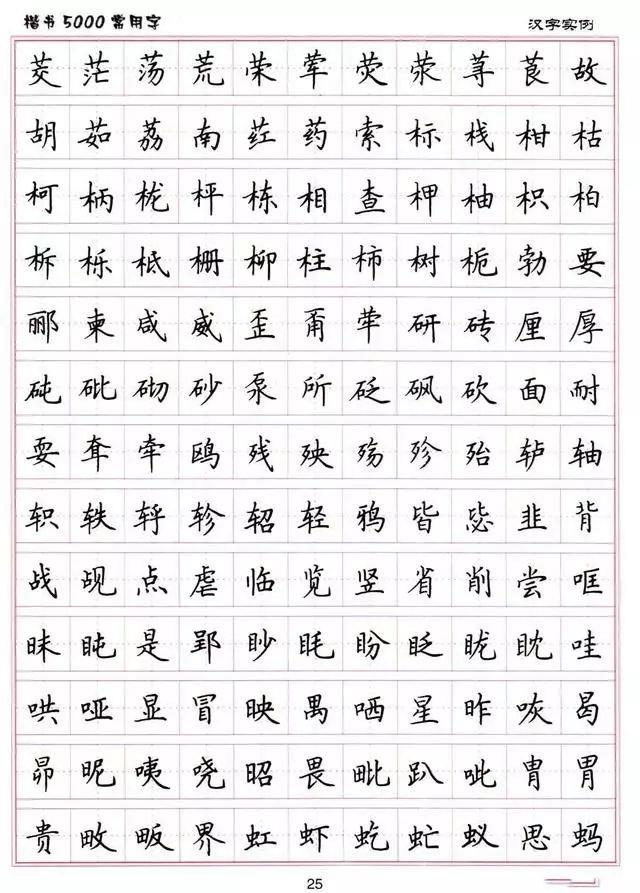 楷书5000常用字 汉字实例
茭茫荡荒荣荤荧荥荨茛故
胡茹荔南荭药索标栈柑枯
柯柄栊枰栋相查柙柚枳柏
柝栎柢栅柳柱柿树栀勃要
郦柬咸威歪甭荜研砖厘厚
砘砒砌砂泵所砭砜砍面耐
耍耷牵鸥残殃殇殄殆轳轴
轵轶轷轸轺轻鸦皆毖韭背
战觇点虐临览竖省削尝哐
昧盹是郢眇眊盼眨眬眈哇
哄哑显冒映禺哂星昨咴曷
昴昵咦哓昭畏毗趴呲胄胃
贵畋畈界虹虾虼虻蚁思蚂
25